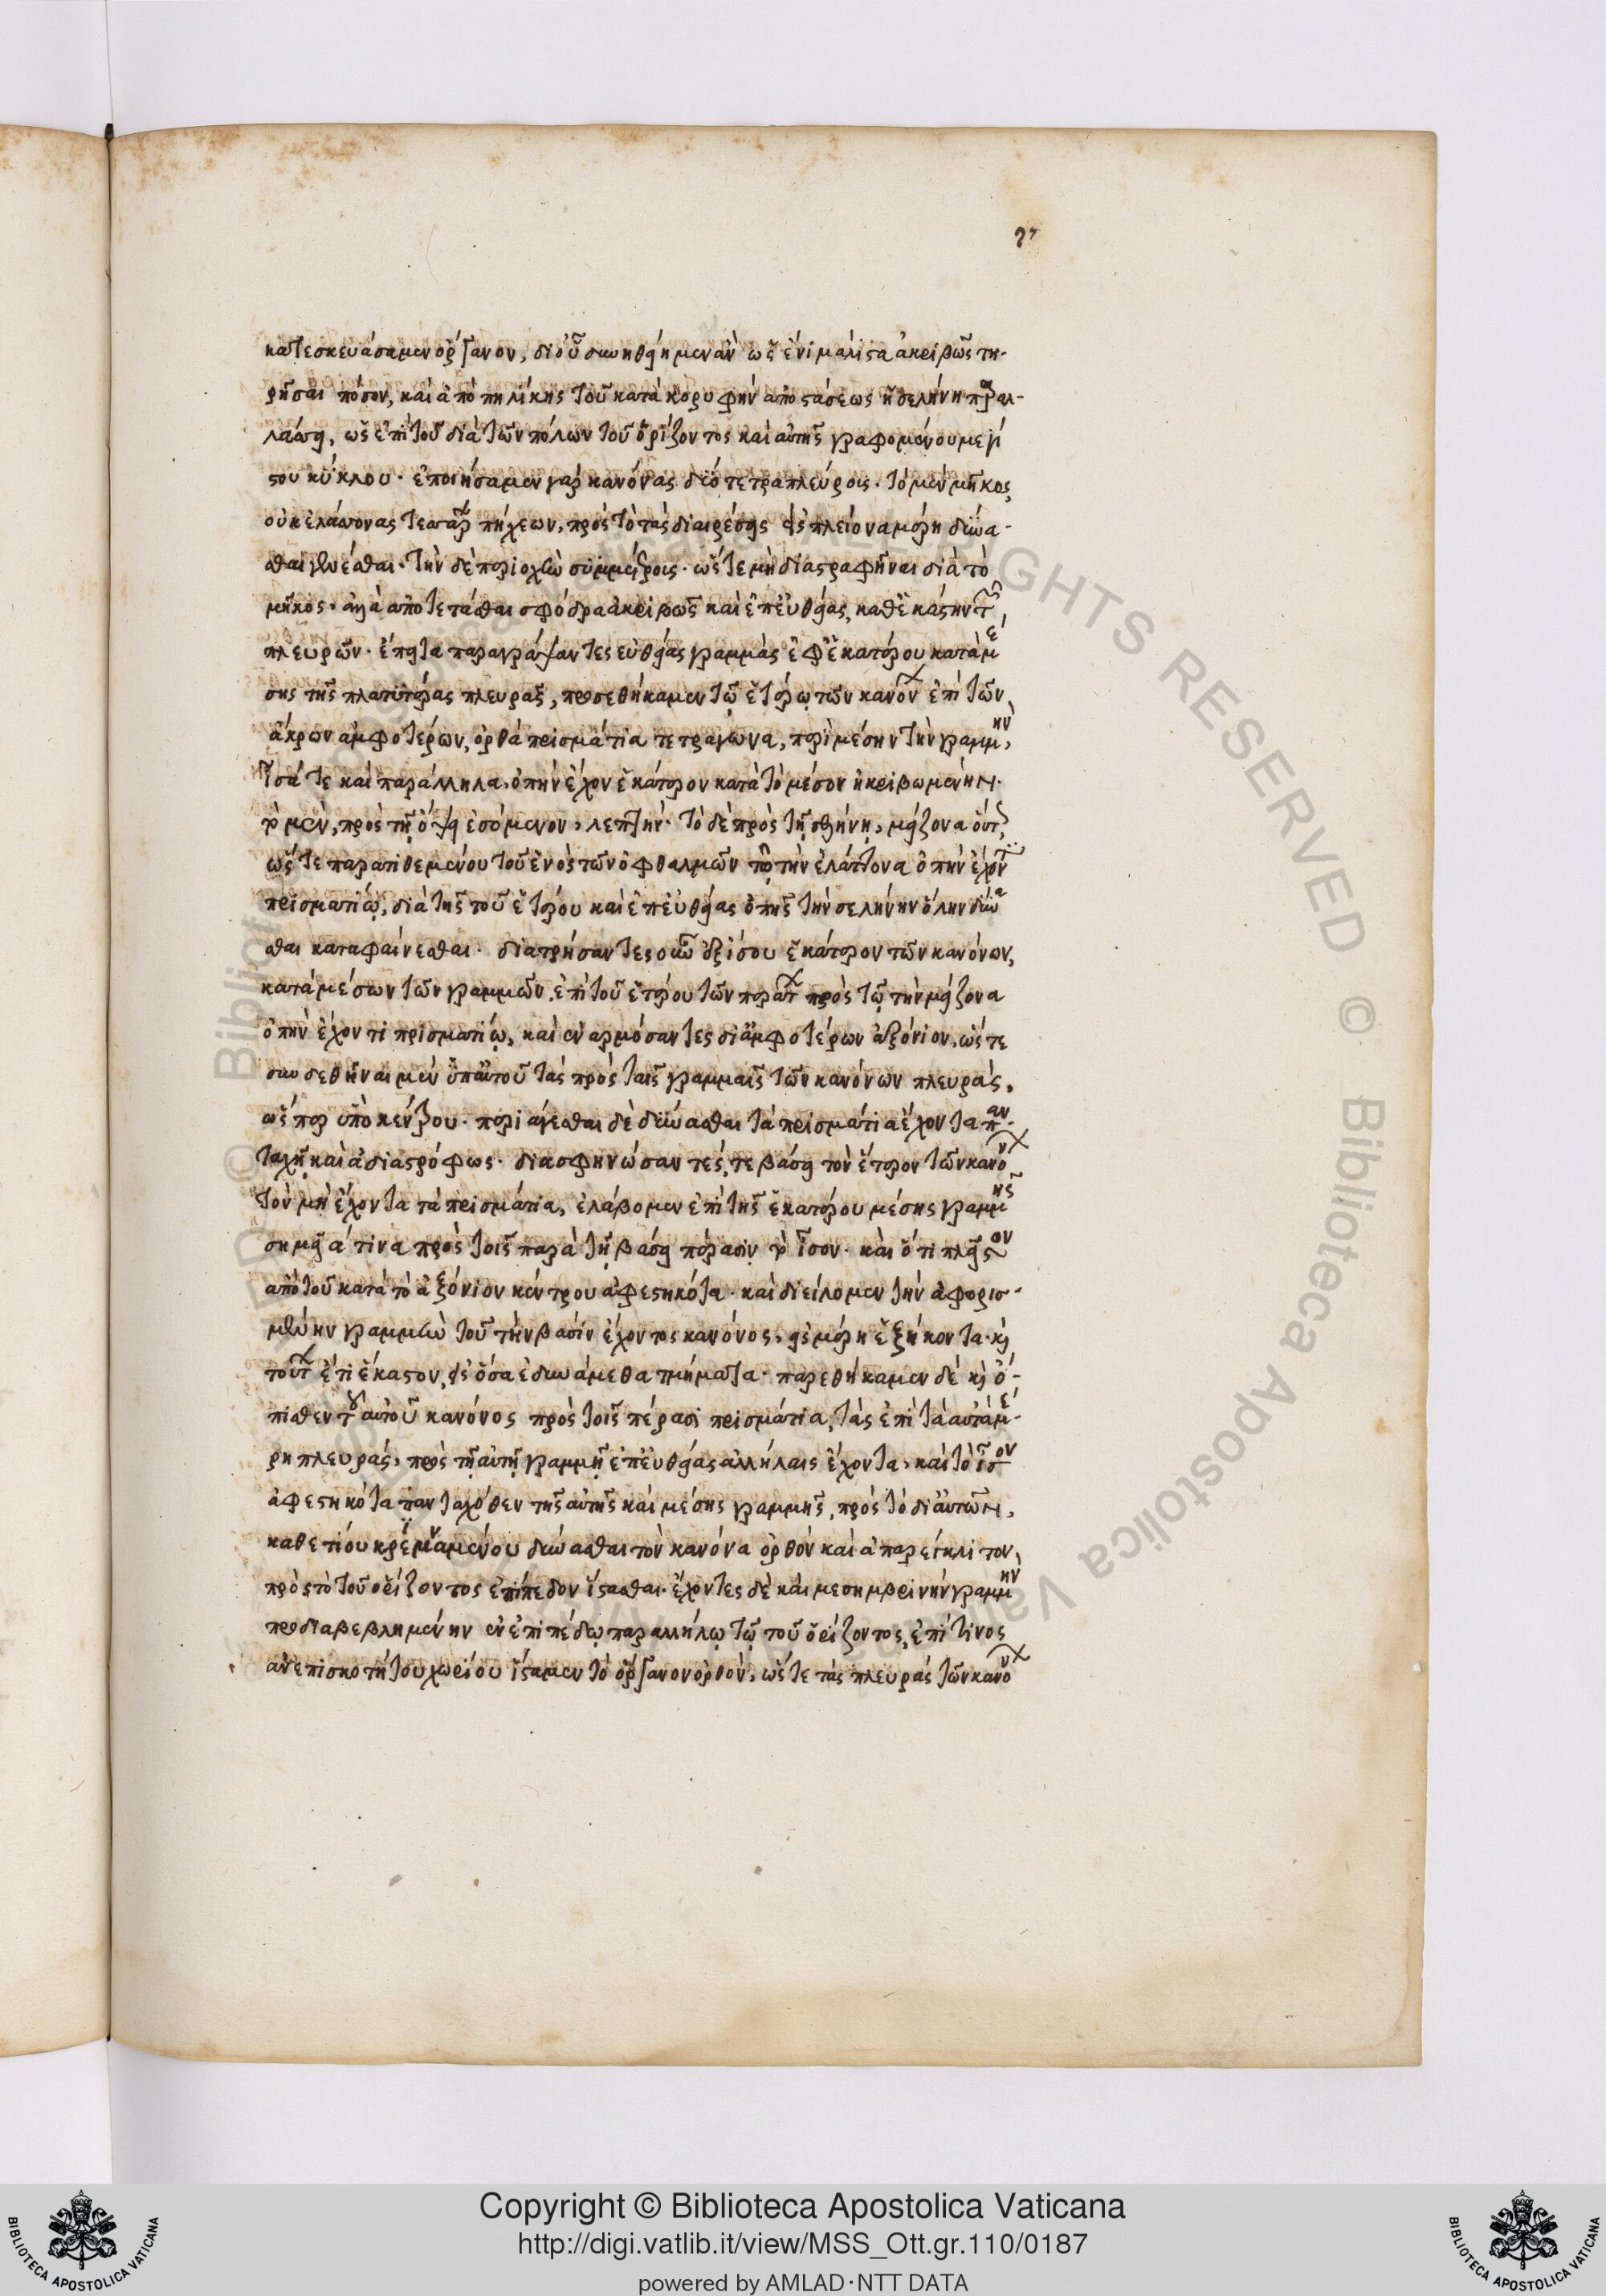 κατεσκευάσαμεν ὄργανον, δι οὗ δυνηθείημεν ἂν ὡς ἔνι μάλιστα ἀκριβῶς τη-
ρῆσαι πόσον, καὶ ἀπὸ πηλίκης τοῦ κατὰ κορυφὴν ἀποστάσεως ἡ σελήνη παραλ-
λάσσει, ὡς ἐπὶ τοῦ διὰ τῶν πόλων τοῦ ὁρίζοντος καὶ αὐτῆς γραφομένου μεγί
στου κύκλου· ἐποιήσαμεν γὰρ κανόνας δύο τετραπλεύρους· τὸ μὲν μῆκος
οὐκ ἐλάττονας τεσσάρων πήχεων, πρὸς τὸ τὰς διαιρέσεις εἰς πλείονα μόρη δύνα-
σθαι γίνεσθαι· τὴν δὲ περιοχὴν συμμέτρους· ὥστε μὴ διαστραφῆναι διὰ τὸ
μῆκος· ἀλλὰ ἀποτετάσθαι σφόδρα ἀκριβῶς καὶ ἐπ εὐθείας, καθ ἑκάστην τῶν
πλευρῶν· ἔπειτα παραγράψαντες εὐθείας γραμμὰς ἐφ ἑκατέρου κατὰ μέ
σης τῆς πλατυτέρας πλευρᾶς, προσεθήκαμεν τῷ ἑτέρῳ τῶν κανόνων ἐπὶ τῶν
ἄκρων ἀμφοτέρων, ὀρθὰ πρισμάτια τετράγωνα, περὶ μέσην τὴν γραμμὴν,
ἴσά τε καὶ παράλληλα, ὀπὴν ἔχον ἑκάτερον κατὰ τὸ μέσον ἠκριβωμένην·
τὸ μὲν, πρὸς τῇ ὄψει ἐσόμενον, λεπτήν· τὸ δὲ πρὸς τῇ σελήνῃ, μείζονα οὕτως
ὥστε παρατιθεμένου τοῦ ἑνὸς τῶν ὀφθαλμῶν τῷ τὴν ἐλάττονα ὀπὴν ἔχοντι
πρισματίῳ, διὰ τῆς τοῦ ἑτέρου καὶ ἐπ εὐθείας ὀπῆς τὴν σελήνην ὅλην δύνα
σθαι καταφαίνεσθαι· διατρήσαντες οὖν ἐξ ἴσου ἑκάτερον τῶν κανόνων,
κατὰ μέσων τῶν γραμμῶν, ἐπὶ τοῦ ἑτέρου τῶν περάτων πρὸς τῷ τὴν μείζονα
ὀπὴν ἔχοντι πρισματίῳ, καὶ ἐναρμόσαντες δι ἀμφοτέρων ἀξόνιον, ὥστε
συνδεθῆναι μὲν ὑπ αὐτοῦ τὰς πρὸς ταῖς γραμμαῖς τῶν κανόνων πλευράς,
ὥσπερ ὑπὸ κέντρου· περιάγεσθαι δὲ δύνασθαι τὰ πρισμάτια ἔχοντα παν-
ταχῇ καὶ ἀδιαστρόφως· διασφηνώσαντές τε βάσει τὸν ἕτερον τῶν κανόνων
τὸν μὴ ἔχοντα τὰ πρισμάτια, ἐλάβομεν ἐπὶ τῆς ἑκατέρου μέσης γραμμῆς
σημεῖά τινα πρὸς τοῖς παρὰ τῇ βάσει πέρασιν τὸ ἴσον· καὶ ὅτι πλεῖστον
ἀπὸ τοῦ κατὰ τὸ ἀξόνιον κέντρου ἀφεστηκότα· καὶ διείλομεν τὴν ἀφορισ-
μένην γραμμὴν τοῦ τὴν βάσιν ἔχοντος κανόνος, εἰς μέρη ἑξήκοντα· καὶ
τούτων ἔτι ἕκαστον, εἰς ὅσα ἐδυνάμεθα τμήματα· παρεθήκαμεν δὲ καὶ ὄ-
πισθεν τοῦ αὐτοῦ κανόνος πρὸς τοῖς πέρασι πρισμάτια, τὰς ἐπὶ τὰ αὐτὰ μέ-
ρη πλευράς, πρὸς τῇ αὐτῇ γραμμῇ ἐπ εὐθείας ἀλλήλαις ἔχοντα, καὶ τὸ ἴσον
ἀφεστηκότα πανταχόθεν τῆς αὐτῆς καὶ μέσης γραμμῆς, πρὸς τὸ δι αὐτῶν,
καθετίου κρεμαμένου δύνασθαι τὸν κανόνα ὀρθὸν καὶ ἀπαρέγκλιτον,
πρὸς τὸ τοῦ ὁρίζοντος ἐπίπεδον ἵστασθαι· ἔχοντες δὲ καὶ μεσημβρινὴν γραμμὴν
προδιαβεβλημένην ἐν ἐπιπέδῳ παραλλήλῳ τῷ τοῦ ὁρίζοντος, ἐπί τινος
ἀνεπισκοτήτου χωρίου ἵσταμεν τὸ ὄργανον ὀρθὸν, ὥστε τὰς πλευρὰς τῶν κανόνων
Copyright © Biblioteca Apostolica Vaticana
http://digi.vatlib.it/view/MSS_Ott.gr.110/0187
powered by AMLAD·NTT DATA